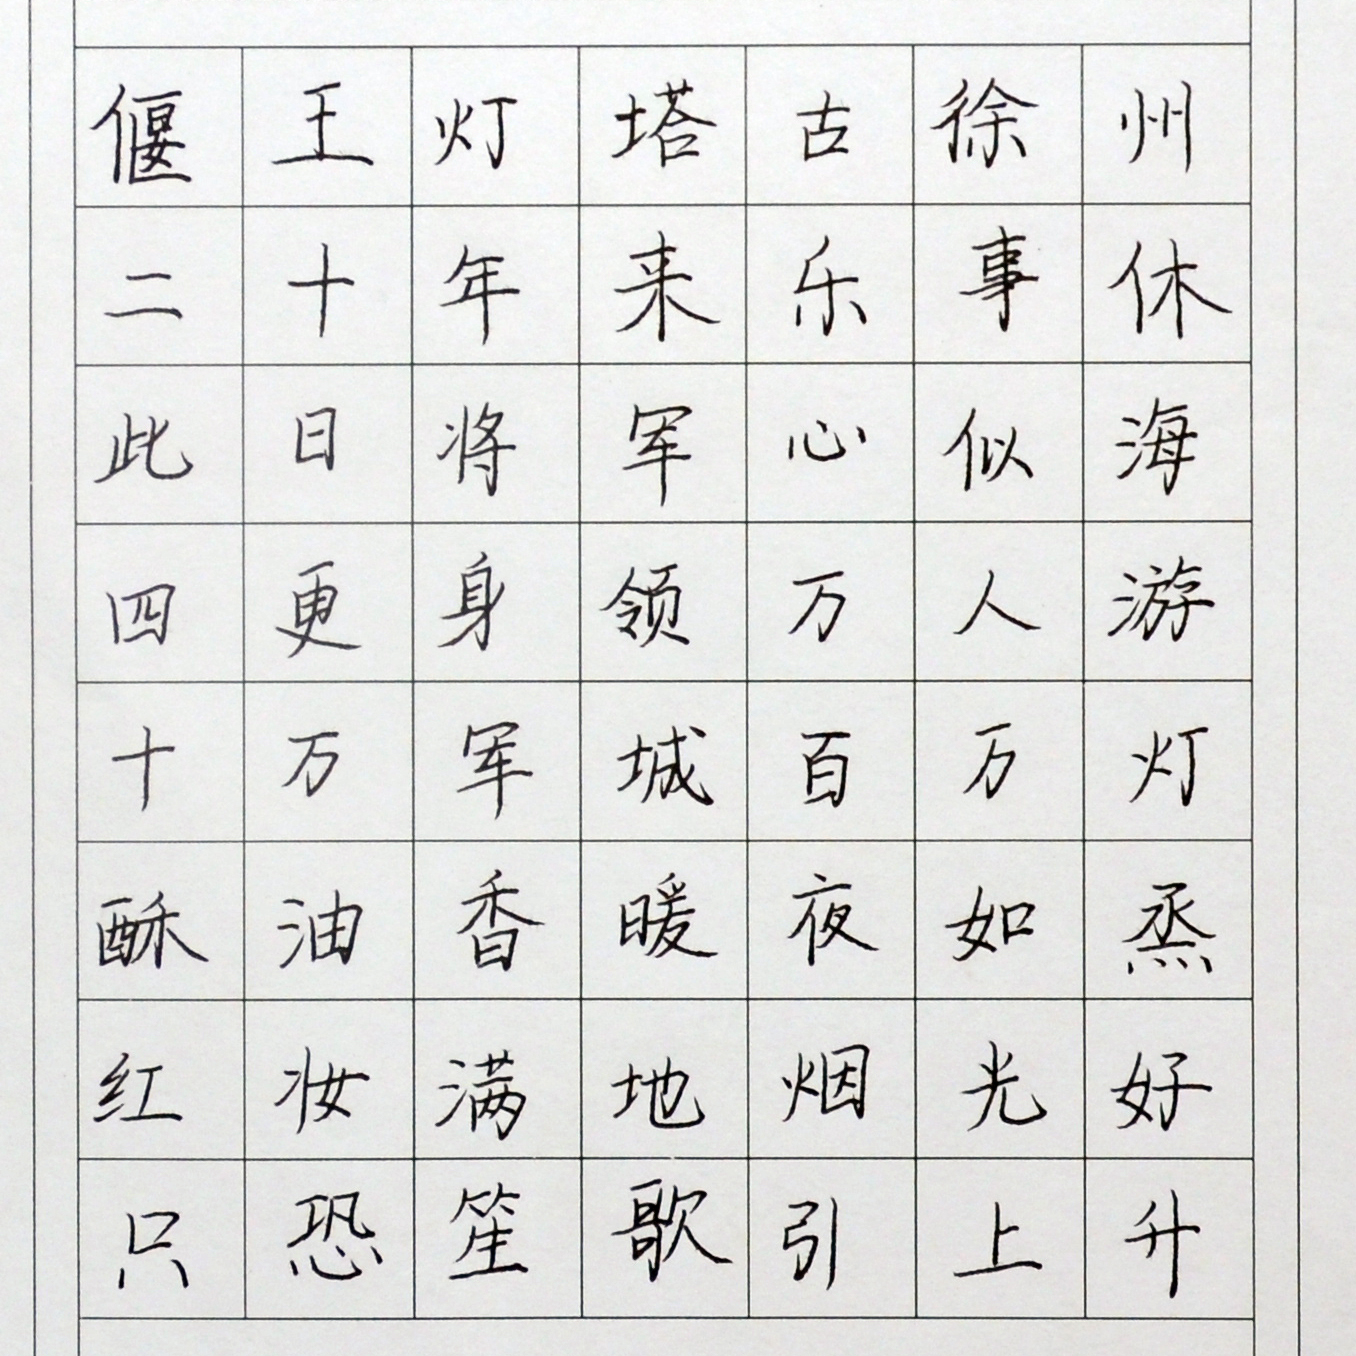 偃王灯塔古徐州
二十年来乐事休
此日将军心似海
四更身领万人游
十万军城百万灯
酥油香暖夜如烝
红妆满地烟光好
只恐笙歌引上升